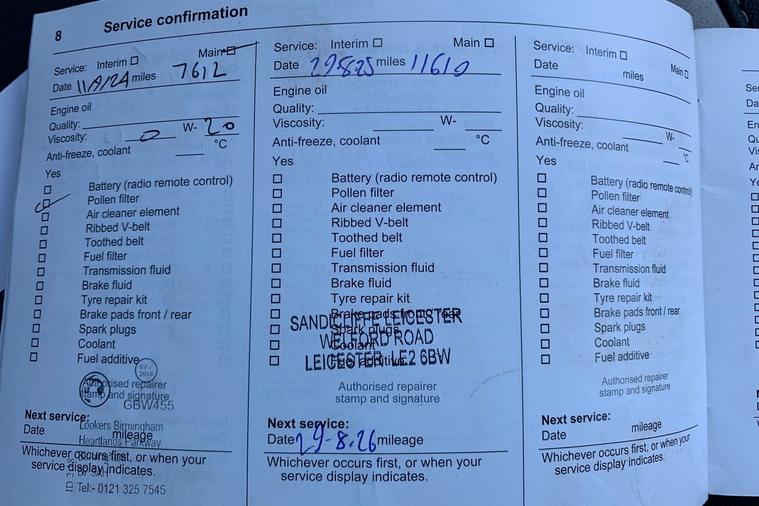 8 Service confirmation
Service: Interim □ Main □
Date 11/1/24 miles 7612
Engine oil
Quality:
Viscosity: 0 W- 20
Anti-freeze, coolant °C
Yes
□ Battery (radio remote control)
□ Pollen filter
□ Air cleaner element
□ Ribbed V-belt
□ Toothed belt
□ Fuel filter
□ Transmission fluid
□ Brake fluid
□ Tyre repair kit
□ Brake pads front / rear
□ Spark plugs
□ Coolant
□ Fuel additive
Authorised repairer
stamp and signature
GBW455
Next service:
Date mileage
Lookers Birmingham
Heartlands Parkway
Whichever occurs first, or when your
service display indicates.
Tel:- 0121 325 7545
Service: Interim □ Main □
Date 29825 miles 11610
Engine oil
Quality:
Viscosity: W-
Anti-freeze, coolant °C
Yes
□ Battery (radio remote control)
□ Pollen filter
□ Air cleaner element
□ Ribbed V-belt
□ Toothed belt
□ Fuel filter
□ Transmission fluid
□ Brake fluid
□ Tyre repair kit
□ Brake pads front / rear
□ Spark plugs
□ Coolant
□ Fuel additive
SANDICLIFFE LEICESTER
WELFORD ROAD
LEICESTER LE2 6BW
Authorised repairer
stamp and signature
Next service:
Date 29-8.26 mileage
Whichever occurs first, or when your
service display indicates.
Service: Interim □ Main □
Date miles
Engine oil
Quality:
Viscosity: W-
Anti-freeze, coolant °C
Yes
□ Battery (radio remote control)
□ Pollen filter
□ Air cleaner element
□ Ribbed V-belt
□ Toothed belt
□ Fuel filter
□ Transmission fluid
□ Brake fluid
□ Tyre repair kit
□ Brake pads front / rear
□ Spark plugs
□ Coolant
□ Fuel additive
Authorised repairer
stamp and signature
Next service:
Date mileage
Whichever occurs first, or when your
service display indicates.